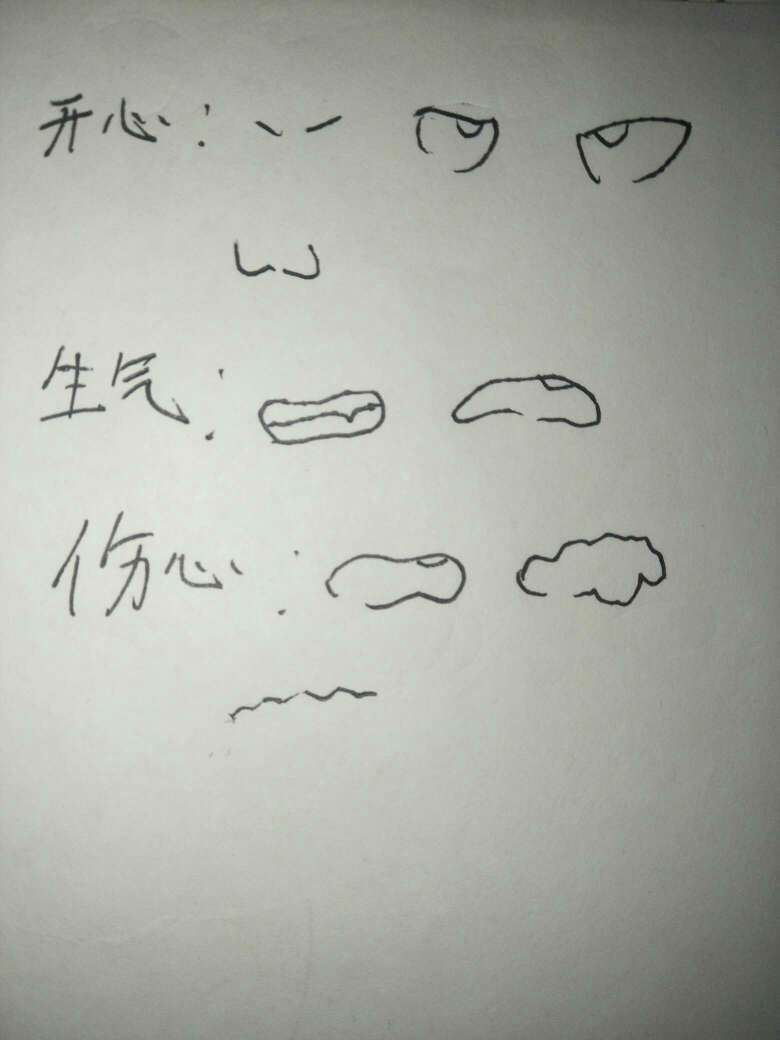 开心:
生气:
伤心: